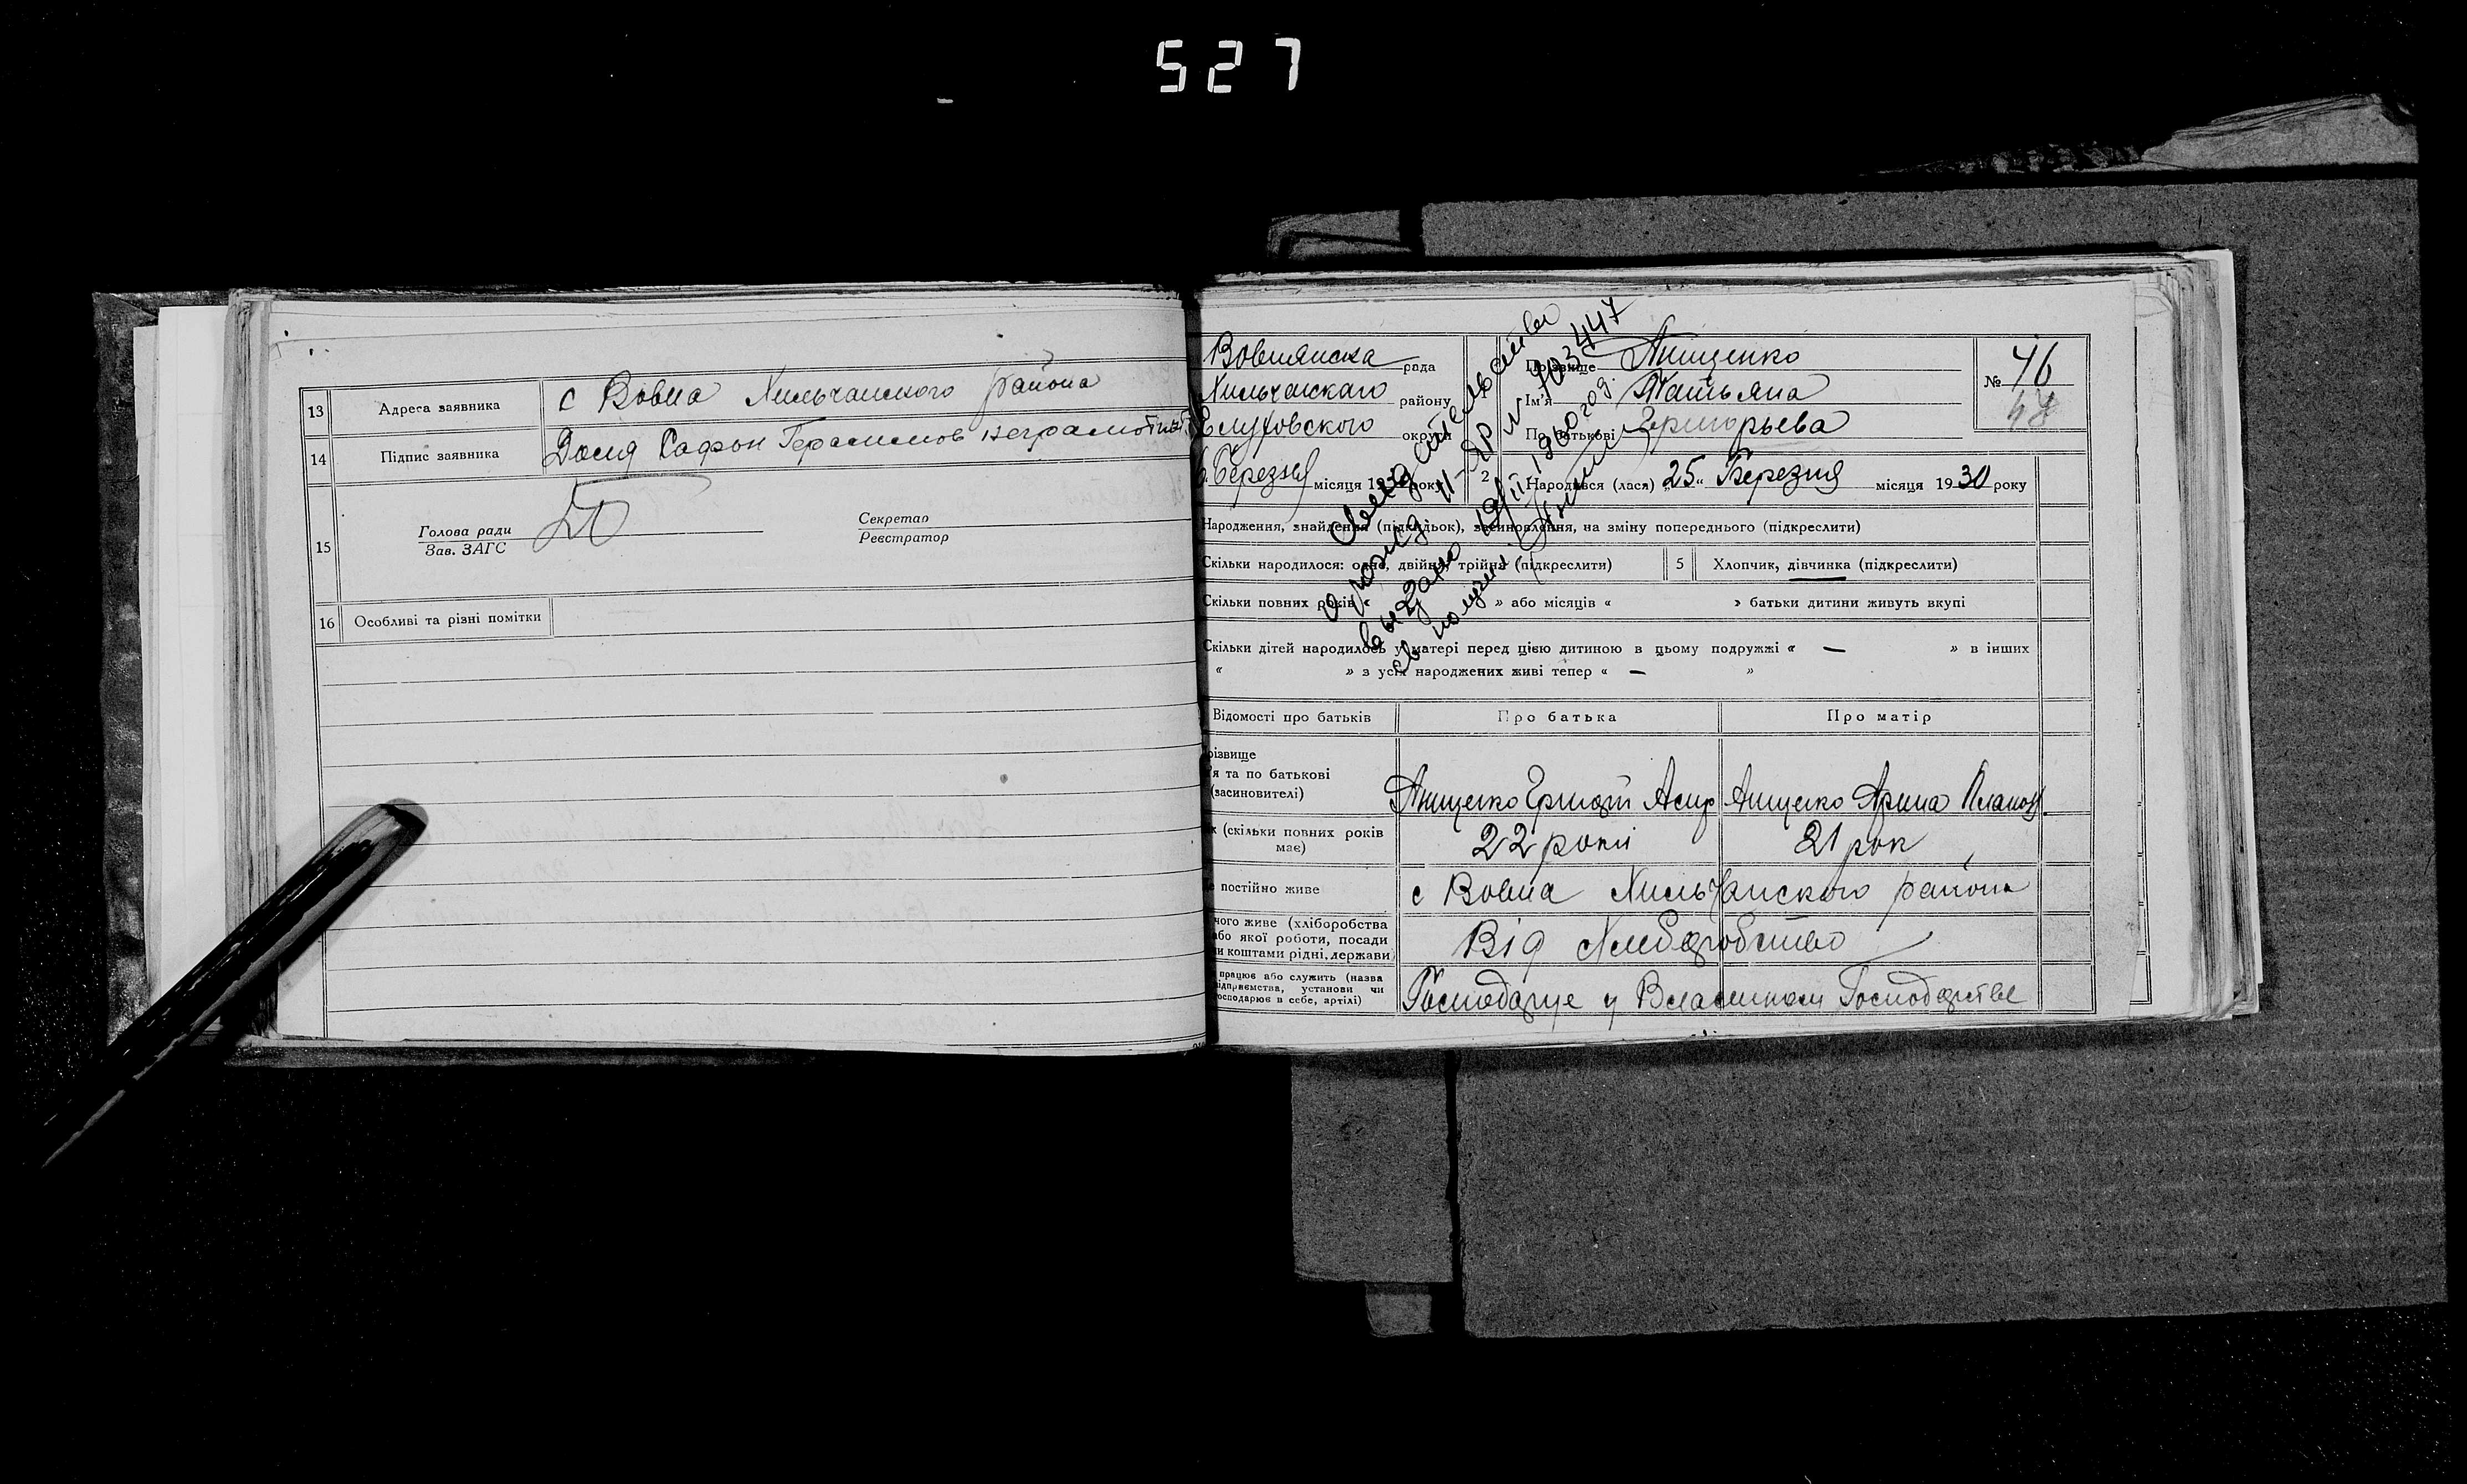 527
13 Адреса заявника с Вовна Хильчанского района
14 Підпис заявника Дощд Сафон Герасимов неграмотный
15 Голова ради
Зав. ЗАГС
Секретар
Реєстратор
16 Особливі та різні помітки
Вовнянска рада
Хильчанскаго району
Глуховского округи
Березня місяця 1930 року
Прізвище Анищенко
Ім'я Татьяна
По батькові Григорьева
№ 46
47
2 Народився (лася) „25„ Березня місяця 1930 року
Народження, знайдення (підкидьок), засиновлення, на зміну попереднього (підкреслити)
Скільки народилося: одно, двійня, трійня (підкреслити) 5 Хлопчик, дівчинка (підкреслити)
Скільки повних років « » або місяців « » батьки дитини живуть вкупі
Скільки дітей народилось у матері перед цією дитиною в цьому подружжі « — » в інших
« » з усіх народжених живі тепер « — »
Відомості про батьків Про батька Про матір
різвище
'я та по батькові
(засиновителі)
Анищенко Григорій Анищенко Арина
к (скільки повних років
має)
22 роки 21 рок
е постійно живе с Вовна Хильчанского района
чого живе (хліборобства
або якої роботи, посади
и коштами рідні, держави)
Від Хлеборобство
працює або служить (назва
ідприємства, установи чи
осподарює в себе, артілі)
Господарує у Власником Господарстве
Свидетельство
о рожд. II-ЯР № 403447
выдано 19/II 1960 год.
св получил